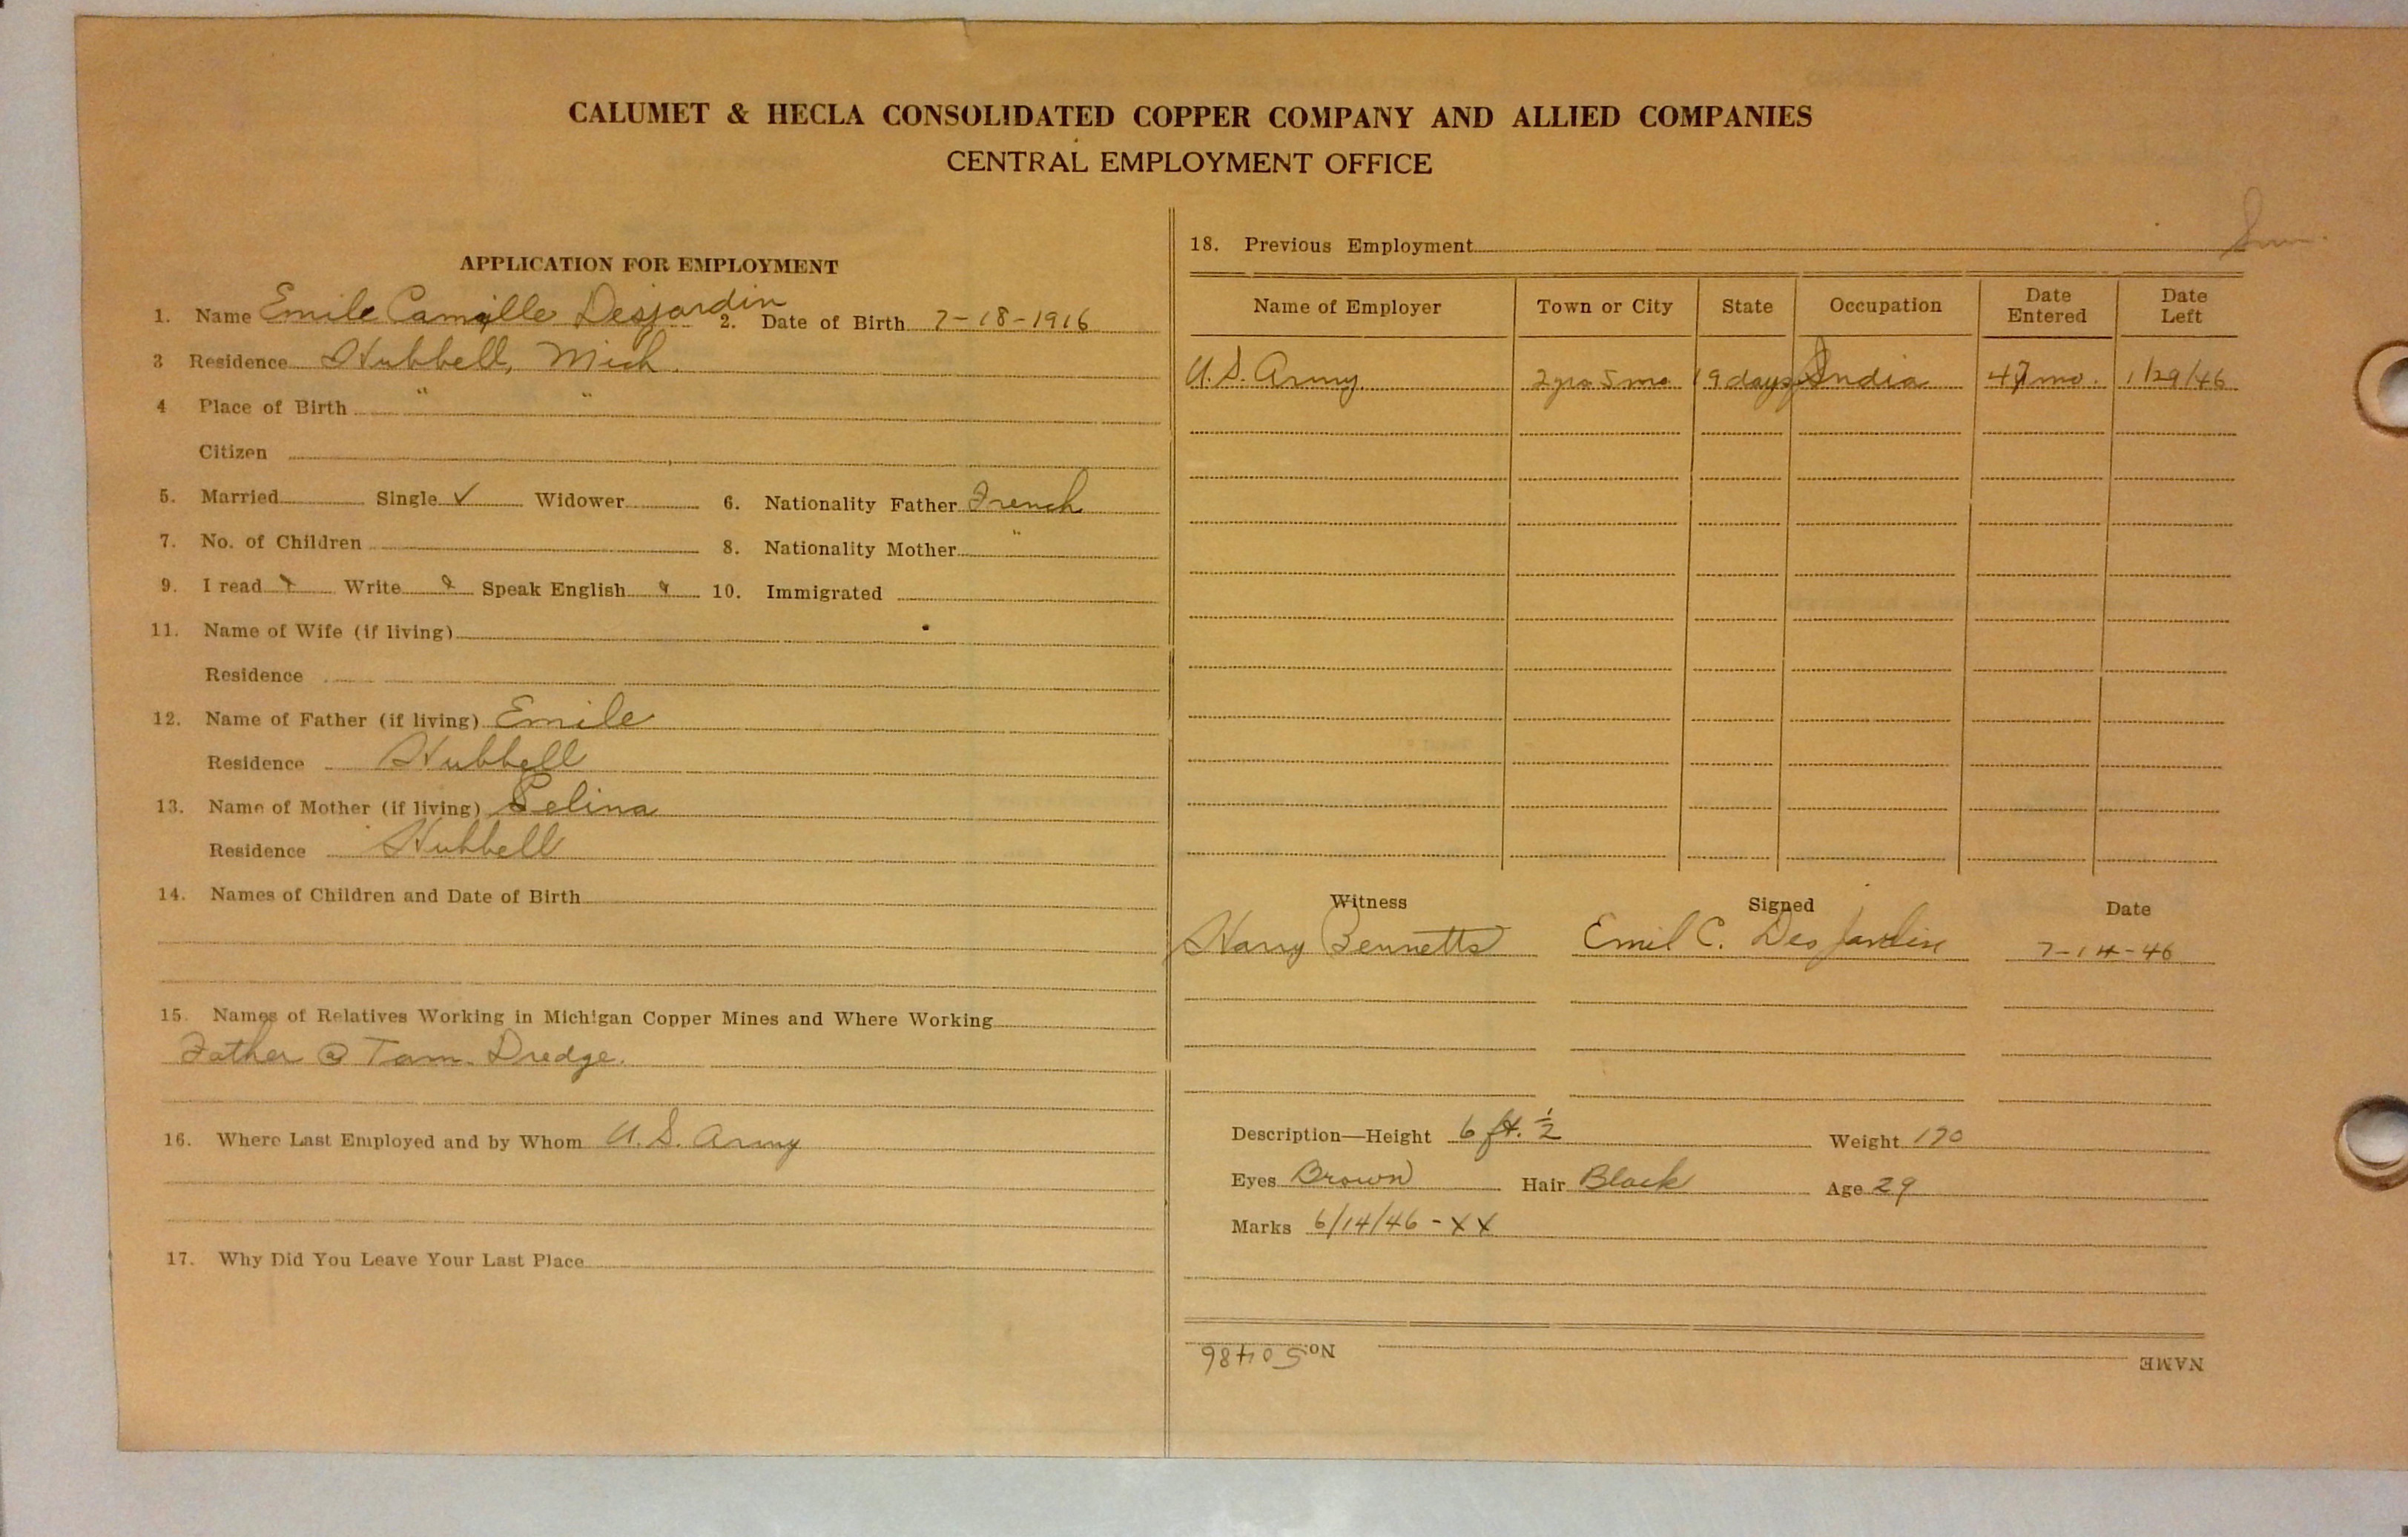 CALUMET & HECLA CONSOLIDATED COPPER COMPANY AND ALLIED COMPANIES
CENTRAL EMPLOYMENT OFFICE
APPLICATION FOR EMPLOYMENT
1. Name Emile Camille Desjardin 2. Date of Birth 7-18-1916
3 Residence Hubbell, Mich.
4 Place of Birth " "
Citizen
5. Married Single ✓ Widower 6. Nationality Father French
7. No. of Children 8. Nationality Mother "
9. I read Write Speak English 10. Immigrated
11. Name of Wife (if living)
Residence
12. Name of Father (if living) Emile
Residence Hubbell
13. Name of Mother (if living) Celina
Residence Hubbell
14. Names of Children and Date of Birth
15. Names of Relatives Working in Michigan Copper Mines and Where Working
Father @ Tam. Dredge.
16. Where Last Employed and by Whom U.S. Army
17. Why Did You Leave Your Last Place
18. Previous Employment
Name of Employer Town or City State Occupation Date Entered Date Left
U.S. Army 2 yrs 5 mo 19 days India 47 mo. 1/29/46
Witness Signed Date
Harry Bennetts Emil C. DesJardin 7-14-46
Description—Height 6 ft. ½ Weight 170
Eyes Brown Hair Black Age 29
Marks 6/14/46 - XX
NAME No. 50486